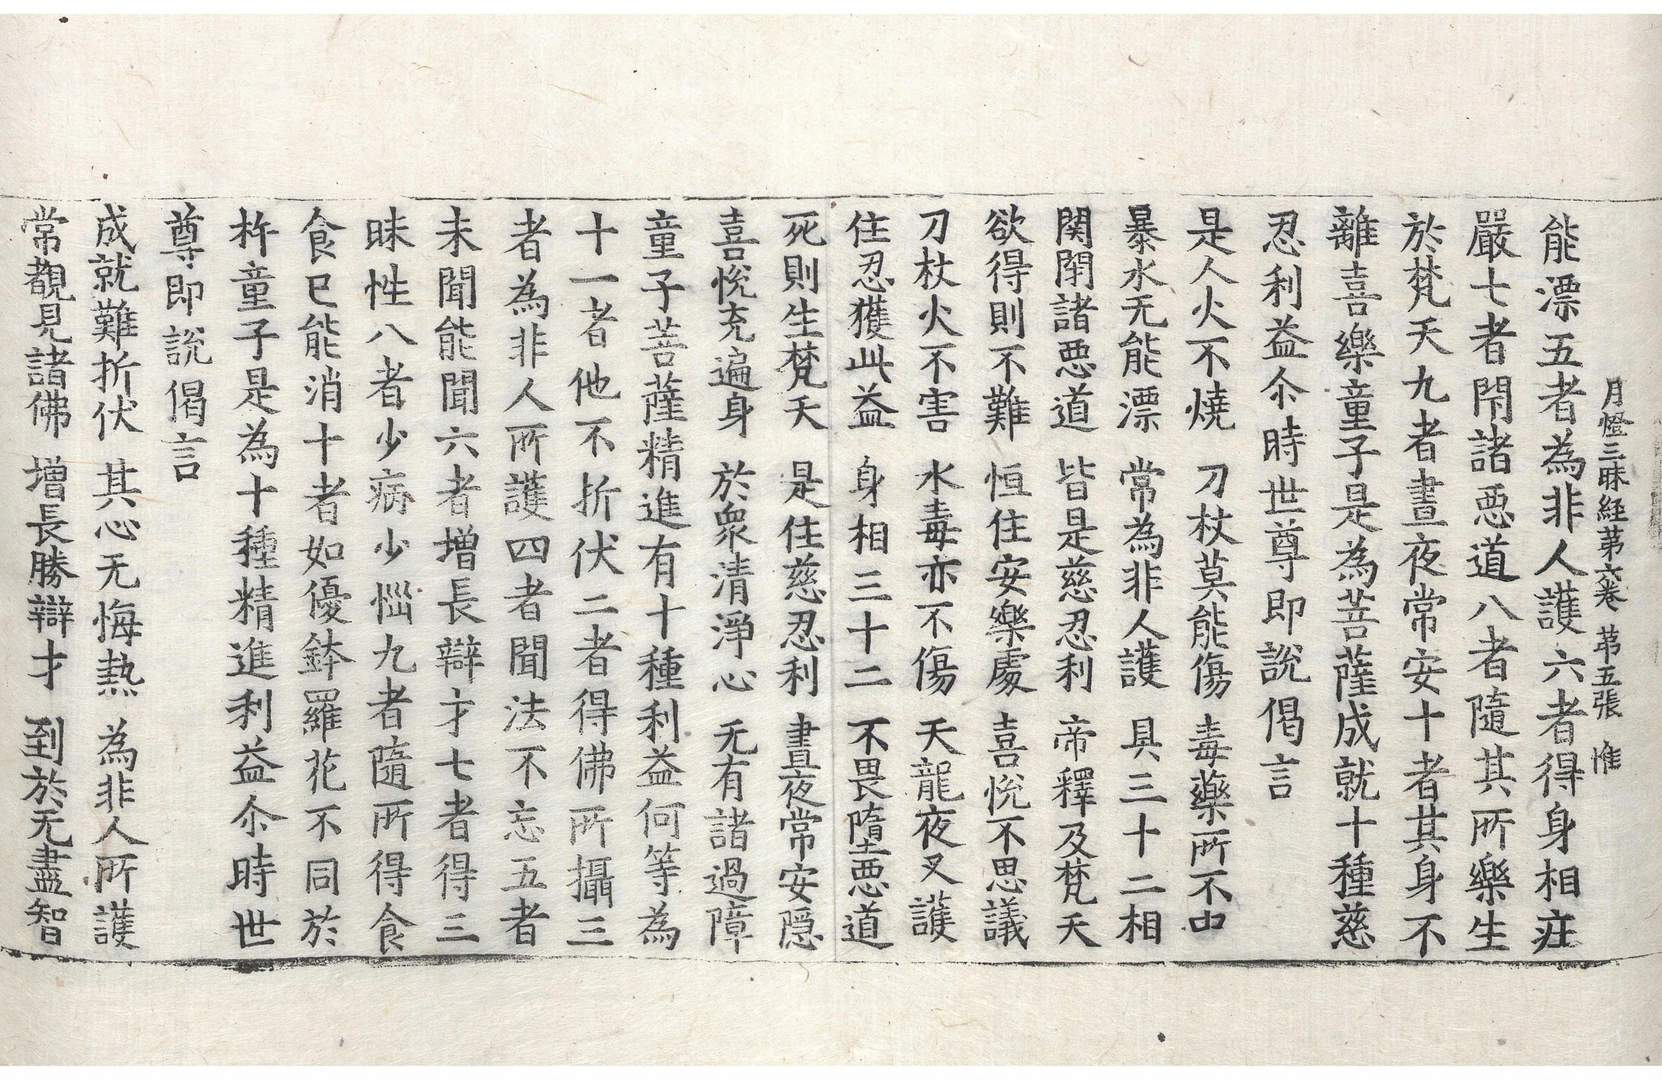 月燈三昧経第六卷 第五張 惟
能漂五者為非人護六者得身相庄
嚴七者閇諸惡道八者隨其所樂生
於梵天九者晝夜常安十者其身不
離喜樂童子是為菩薩成就十種慈
忍利益尒時世尊即說偈言
是人火不燒 刀杖莫能傷 毒藥所不中
暴水无能漂 常為非人護 具三十二相
関閇諸惡道 皆是慈忍利 帝釋及梵天
欲得則不難 恒住安樂處 喜悅不思議
刀杖火不害 水毒亦不傷 天龍夜叉護
住忍獲此益 身相三十二 不畏墮惡道
死則生梵天 是住慈忍利 晝夜常安隱
喜悅充遍身 於衆清淨心 无有諸過障
童子菩薩精進有十種利益何等為
十一者他不折伏二者得佛所攝三
者為非人所護四者聞法不忘五者
未聞能聞六者增長辯才七者得三
昧性八者少病少惱九者隨所得食
食已能消十者如優鉢羅花不同於
杵童子是為十種精進利益尒時世
尊即說偈言
成就難折伏 其心无悔熱 為非人所護
常觀見諸佛 增長勝辯才 到於无盡智